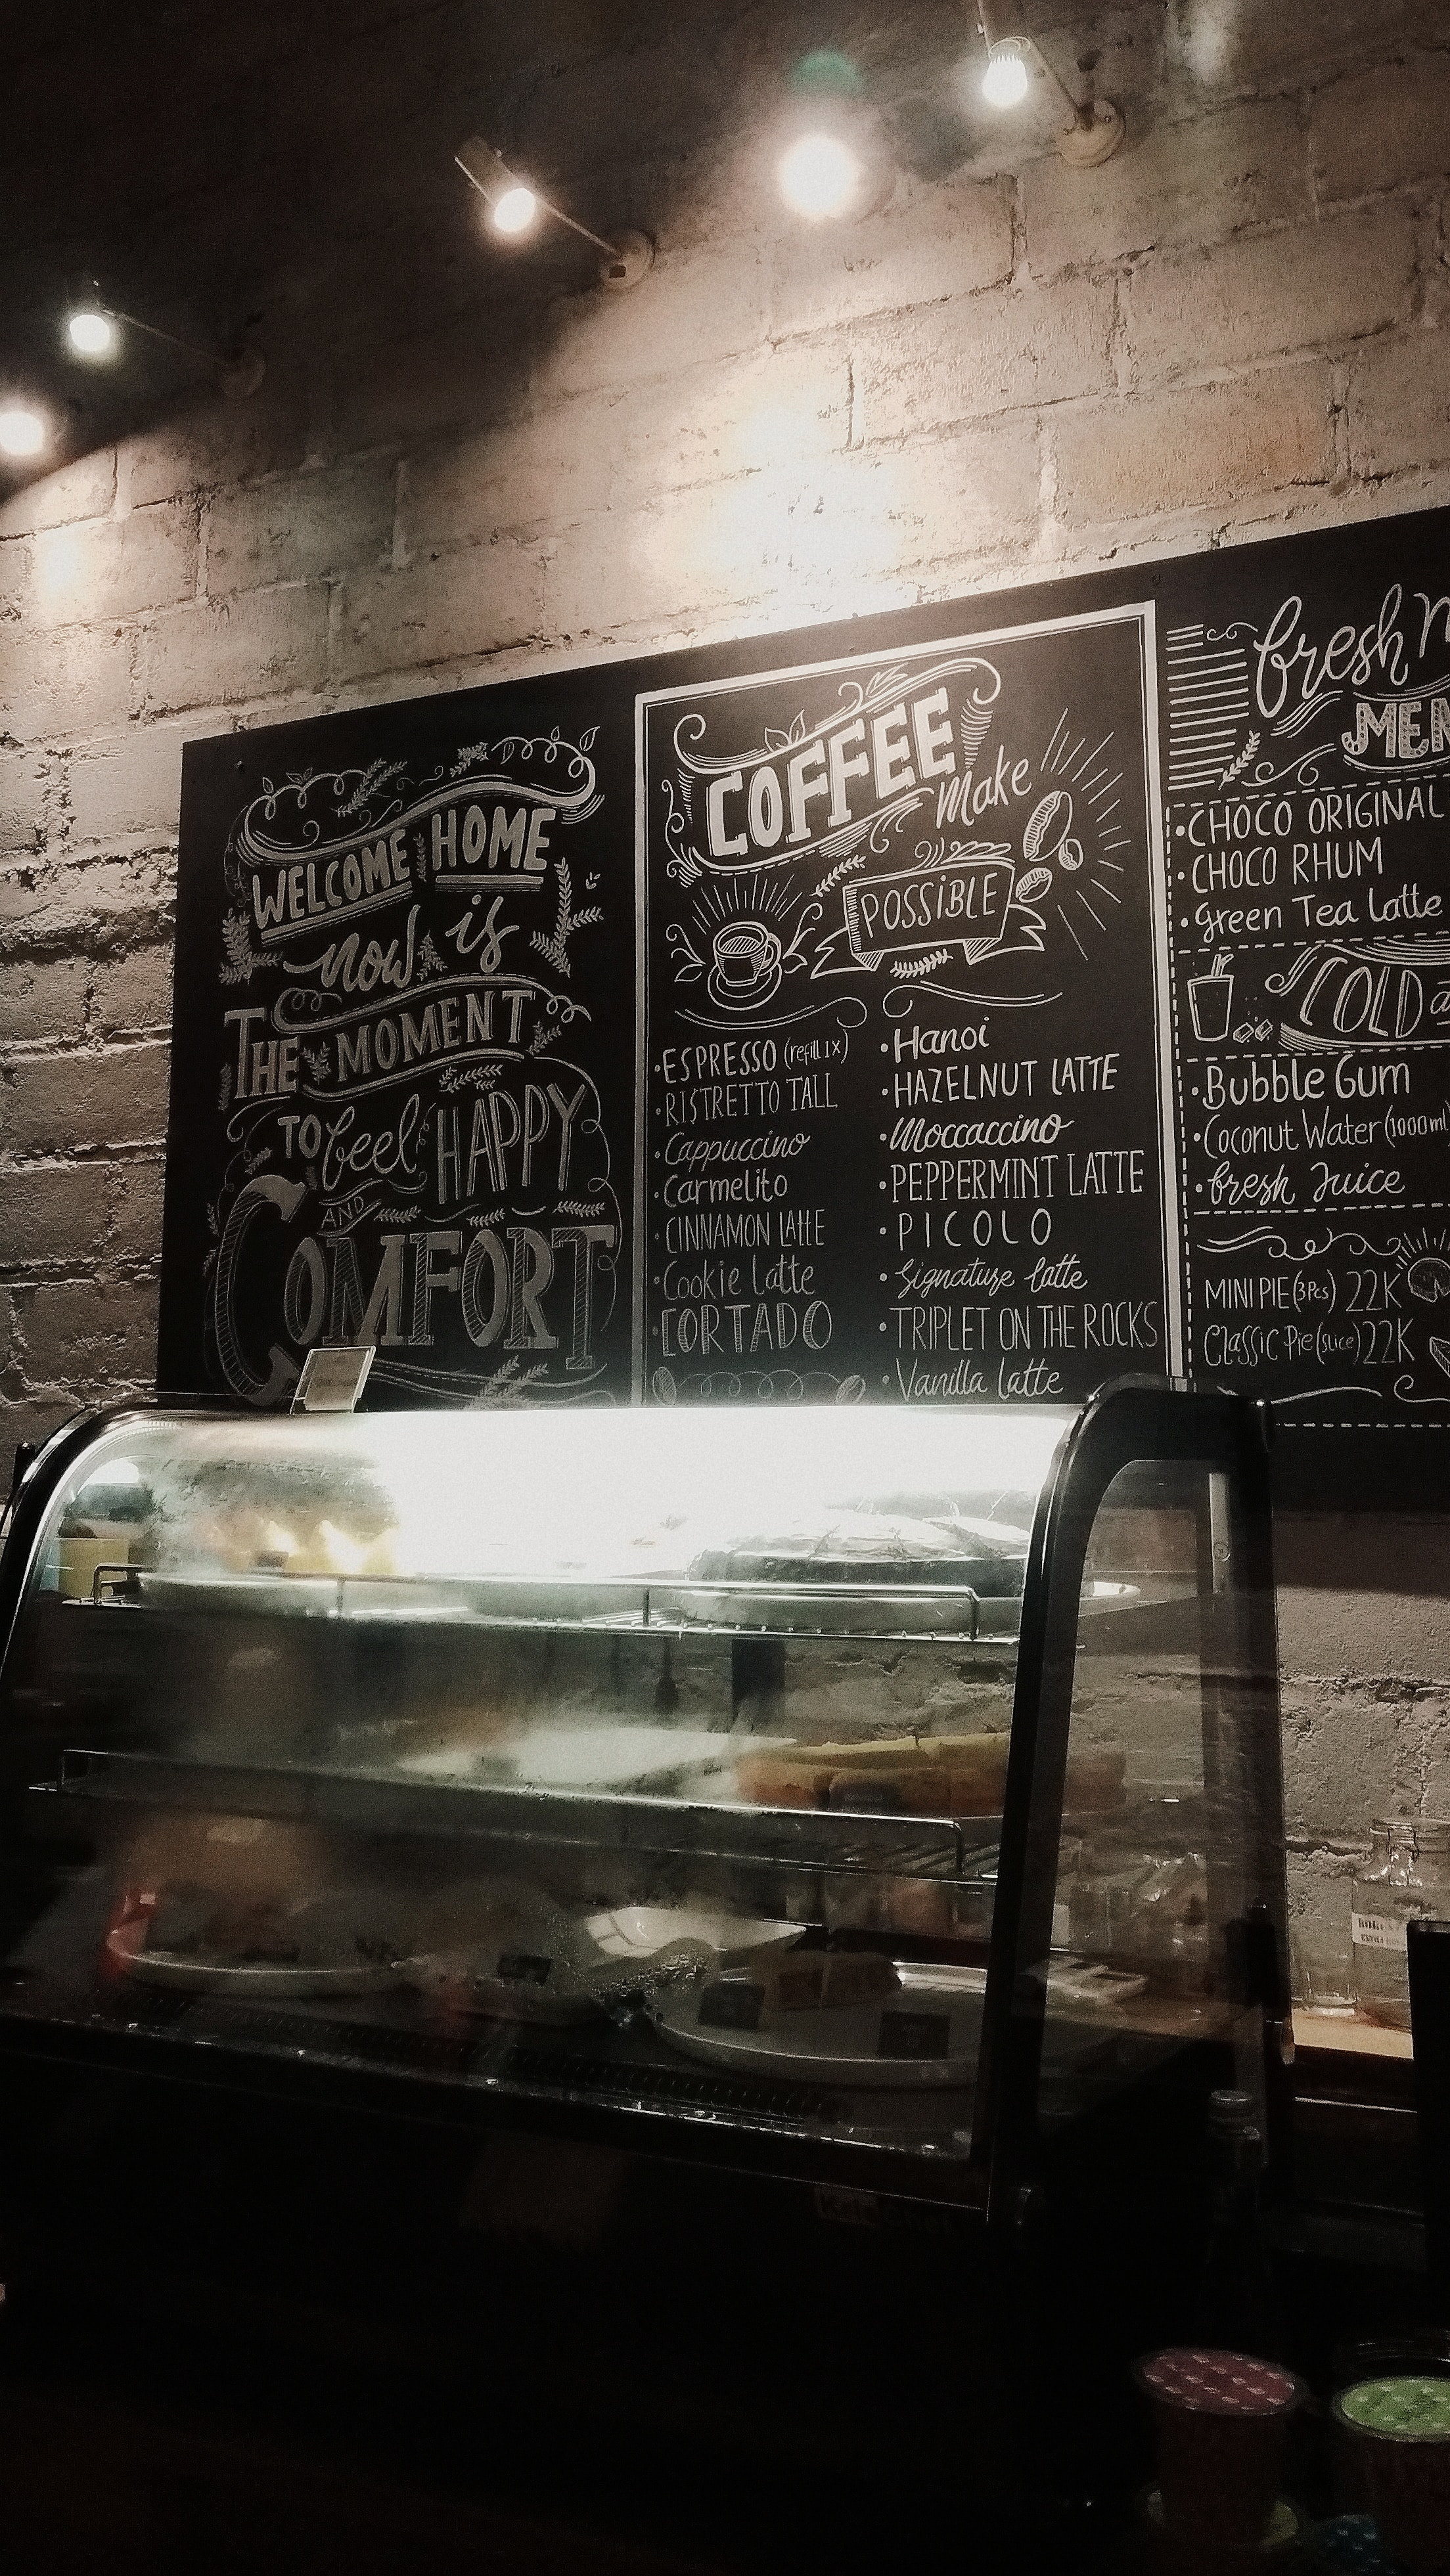 WELCOME HOME
now is
THE MOMENT
TO feel HAPPY
AND
COMFORT
COFFEE
Make
POSSiBLE
• ESPRESSO (refill 1x)
• RISTRETTO TALL
• Cappuccino
• Carmelito
• CINNAMON LAttE
• Cookie Latte
• CORTADO
• Hanoi
• HAZELNUT LATTE
• Moccaccino
• PEPPERMINT LATTE
• PICOLO
• Signature latte
• TRIPLET ON THE ROCKS
• Vanilla latte
fresh
MEN
• CHOCO ORIGINAL
• CHOCO RHUM
• Green Tea Latte
COLD
• Bubble Gum
• Coconut Water (1000ml
• fresh Juice
MINI PIE (3Pcs) 22K
Classic Pie (slice) 22K